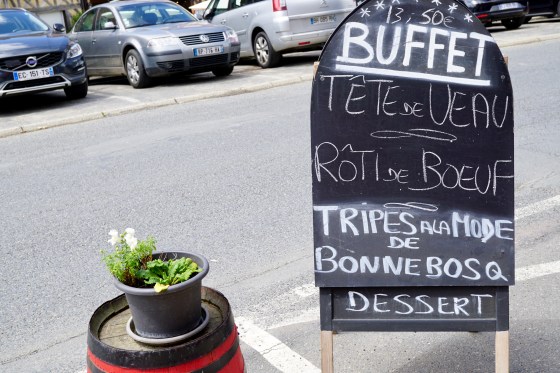 13,50€
BUFFET
TÊTE DE VEAU
RÔTI DE BOEUF
TRIPES A LA MODE
DE
BONNEBOSQ
DESSERT